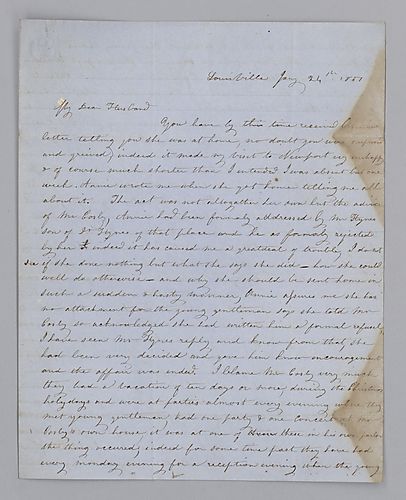 Louisville Jany 24th 1851
My Dear Husband
You have by this time received Annie's
letter telling you she was at home, no doubt you were surprised
and grieved, indeed it made my visit to Newport very unhappy
& of course much shorter than I intended I was absent but one
week. Annie wrote me when she got home telling me all
about it. The act was not altogether her own but the advice
of Mr Cosby, Annie had been formaly addressed by Mr Flynes
son of Dr Flynes of that place and he as formaly rejected
by her & indeed it has caused me a greatdeal of trouble I do not
see if she done nothing but what she says she did — how she could
well do otherwise — and why she should be sent home in
such a sudden & hasty manner, Annie assures me she has
no attachment for the young gentleman says she told Mr
Cosby so acknowledged she had written him a formal refusal,
I have seen Mr Flynes reply, and know from that she
had been very decided and gave him know encouragement
and the affair was ended. I blame Mr Cosby very much
they had a vacation of ten days or more during the Christmas
holy days and were at parties almost every evening where they
met young gentlemen, had one party & one Concert at Mr
Cosby's own house it was at one of these in his own parlor
the thing occured; indeed for some time past they have had
every monday evening for a reception evening when the young